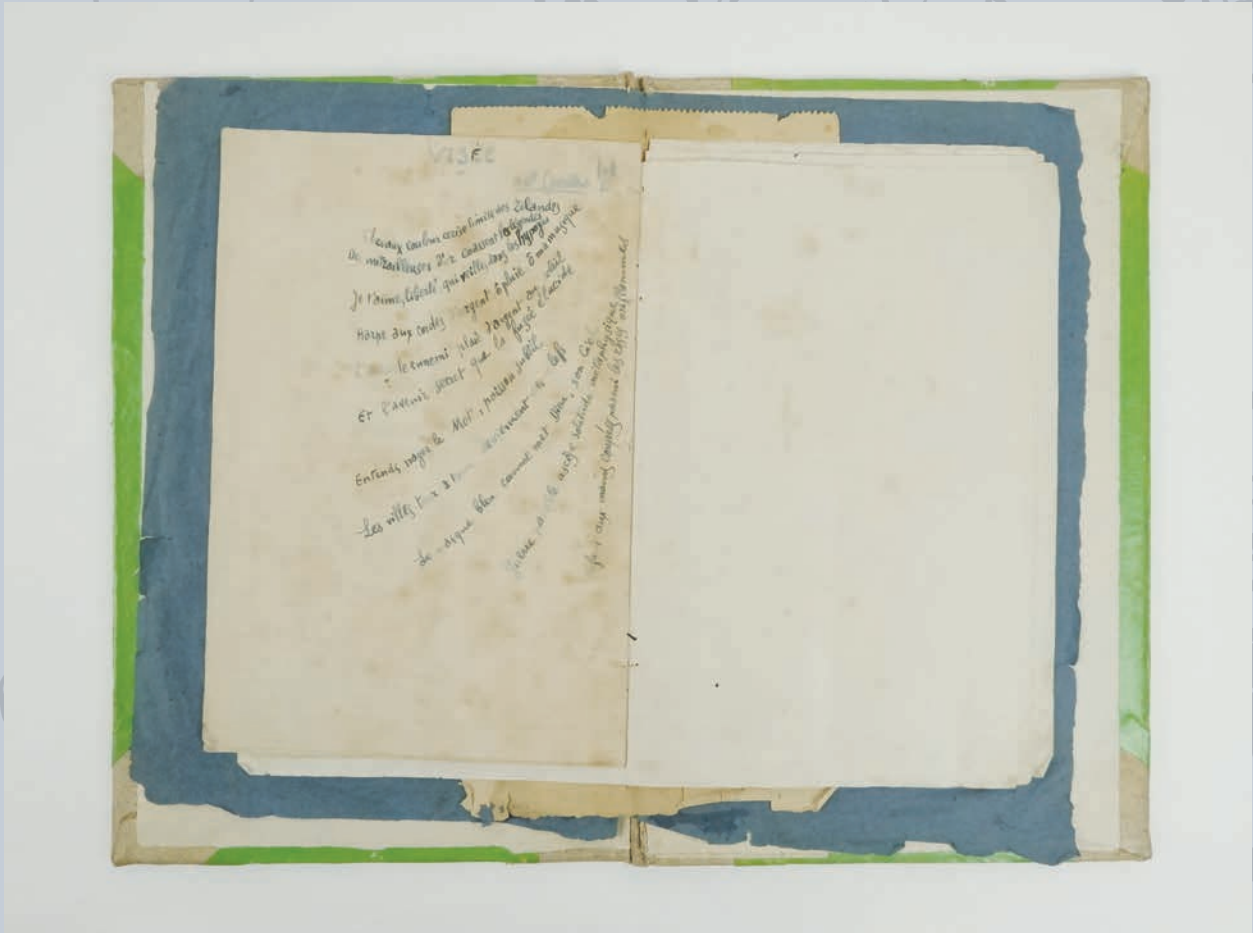 VISÉE
chevaux couleur cerise limite des Zélandes
Des mitrailleuses d'or coassent les légendes
Je t'aime, liberté qui veilles dans les hypogées
Harpe aux cordes d'argent ô pluie ô ma musique
ennemi plaie d'argent au soleil
Et l'avenir secret que la fusée élucide
Entends nager le Mot, poisson subtil
Les villes tour à tour deviennent clefs
Le masque bleu comme met Dieu son ciel
Guerre paisible ascèse solitude métaphysique
Enfant aux mains coupées parmi les roses oriflammes